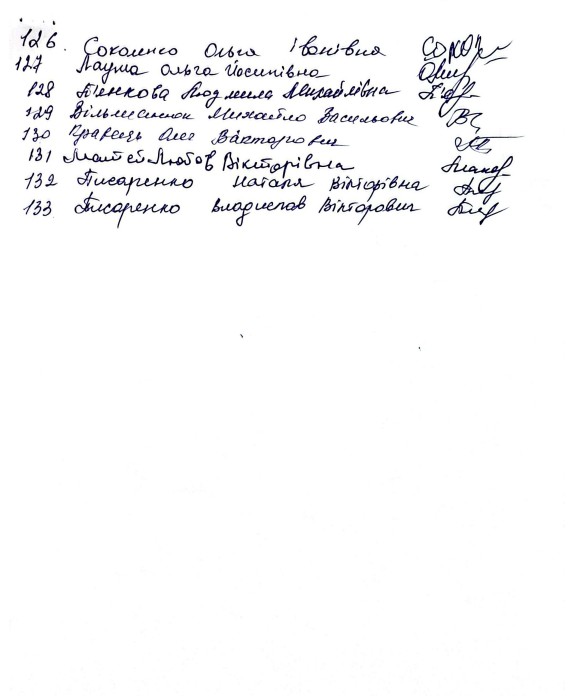 126. Соколенко Ольга Іванівна
127 Лаума Ольга Йосипівна
128 П'янкова Людмила Михайлівна
129 Михайло Васильович
130 Кравець Олег Вікторович
131 Любов Вікторівна
132 Писаренко Наталя Вікторівна
133 Писаренко Владислав Вікторович